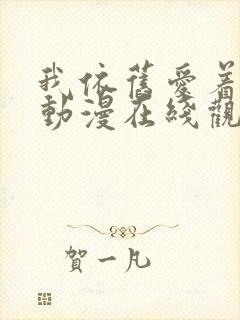 我依舊愛着
動漫在綫觀
賀一凡